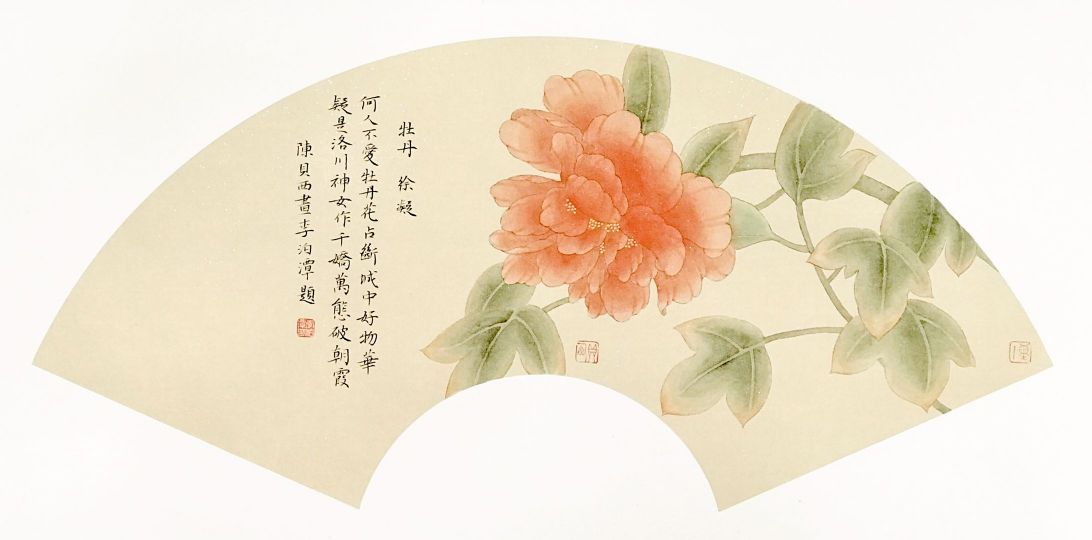 牡丹 徐凝
何人不愛牡丹花占斷城中好物華
疑是洛川神女作千嬌萬態破朝霞
陳貝西畫李泊潭題